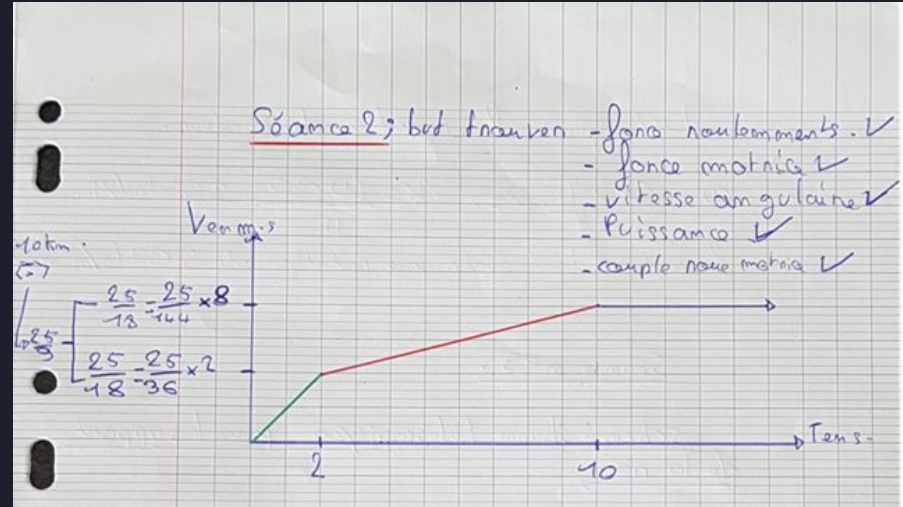 Séance 2; but trouver - force roulemments. ✓
- force motrice ✓
- vitesse angulaire ✓
- Puissance ✓
- couple roue motrice ✓
V en m.s
10km.
25/9
25/18 = 25/144 × 8
25/18 = 25/36 × 2
T en s.
2
10